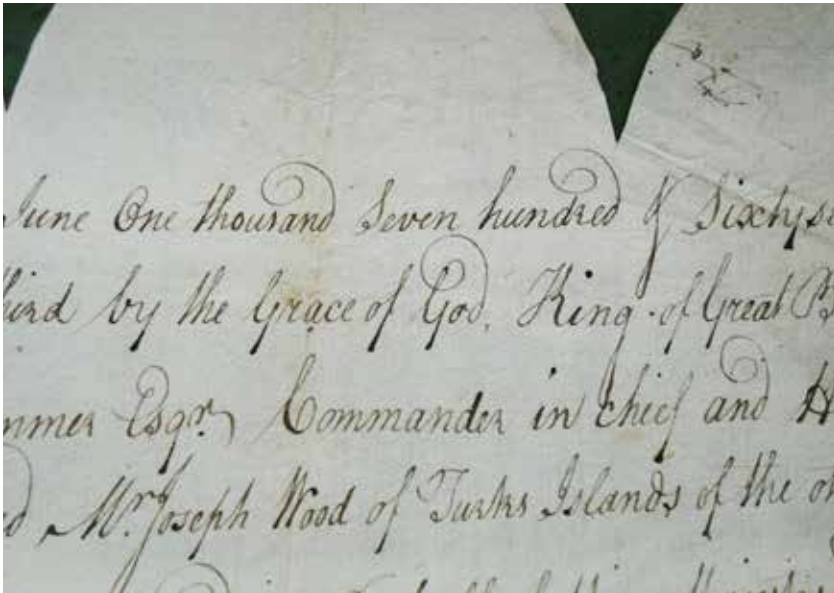 June One thousand Seven hundred & Sixty se
hird by the Grace of God, King of Great B
mmer Esqr. Commander in chief and H
ed Mr. Joseph Wood of Turks Islands of the o